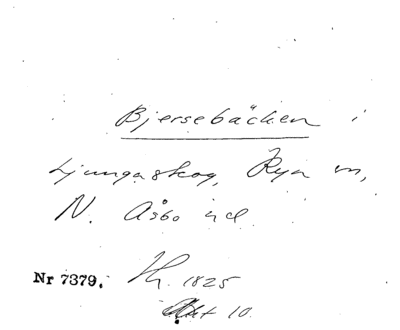 Bjersebäcken i
Ljungaskog, Ryn m,
N. Åsbo hd
Nr 7379. Th. 1825
Akt 10.